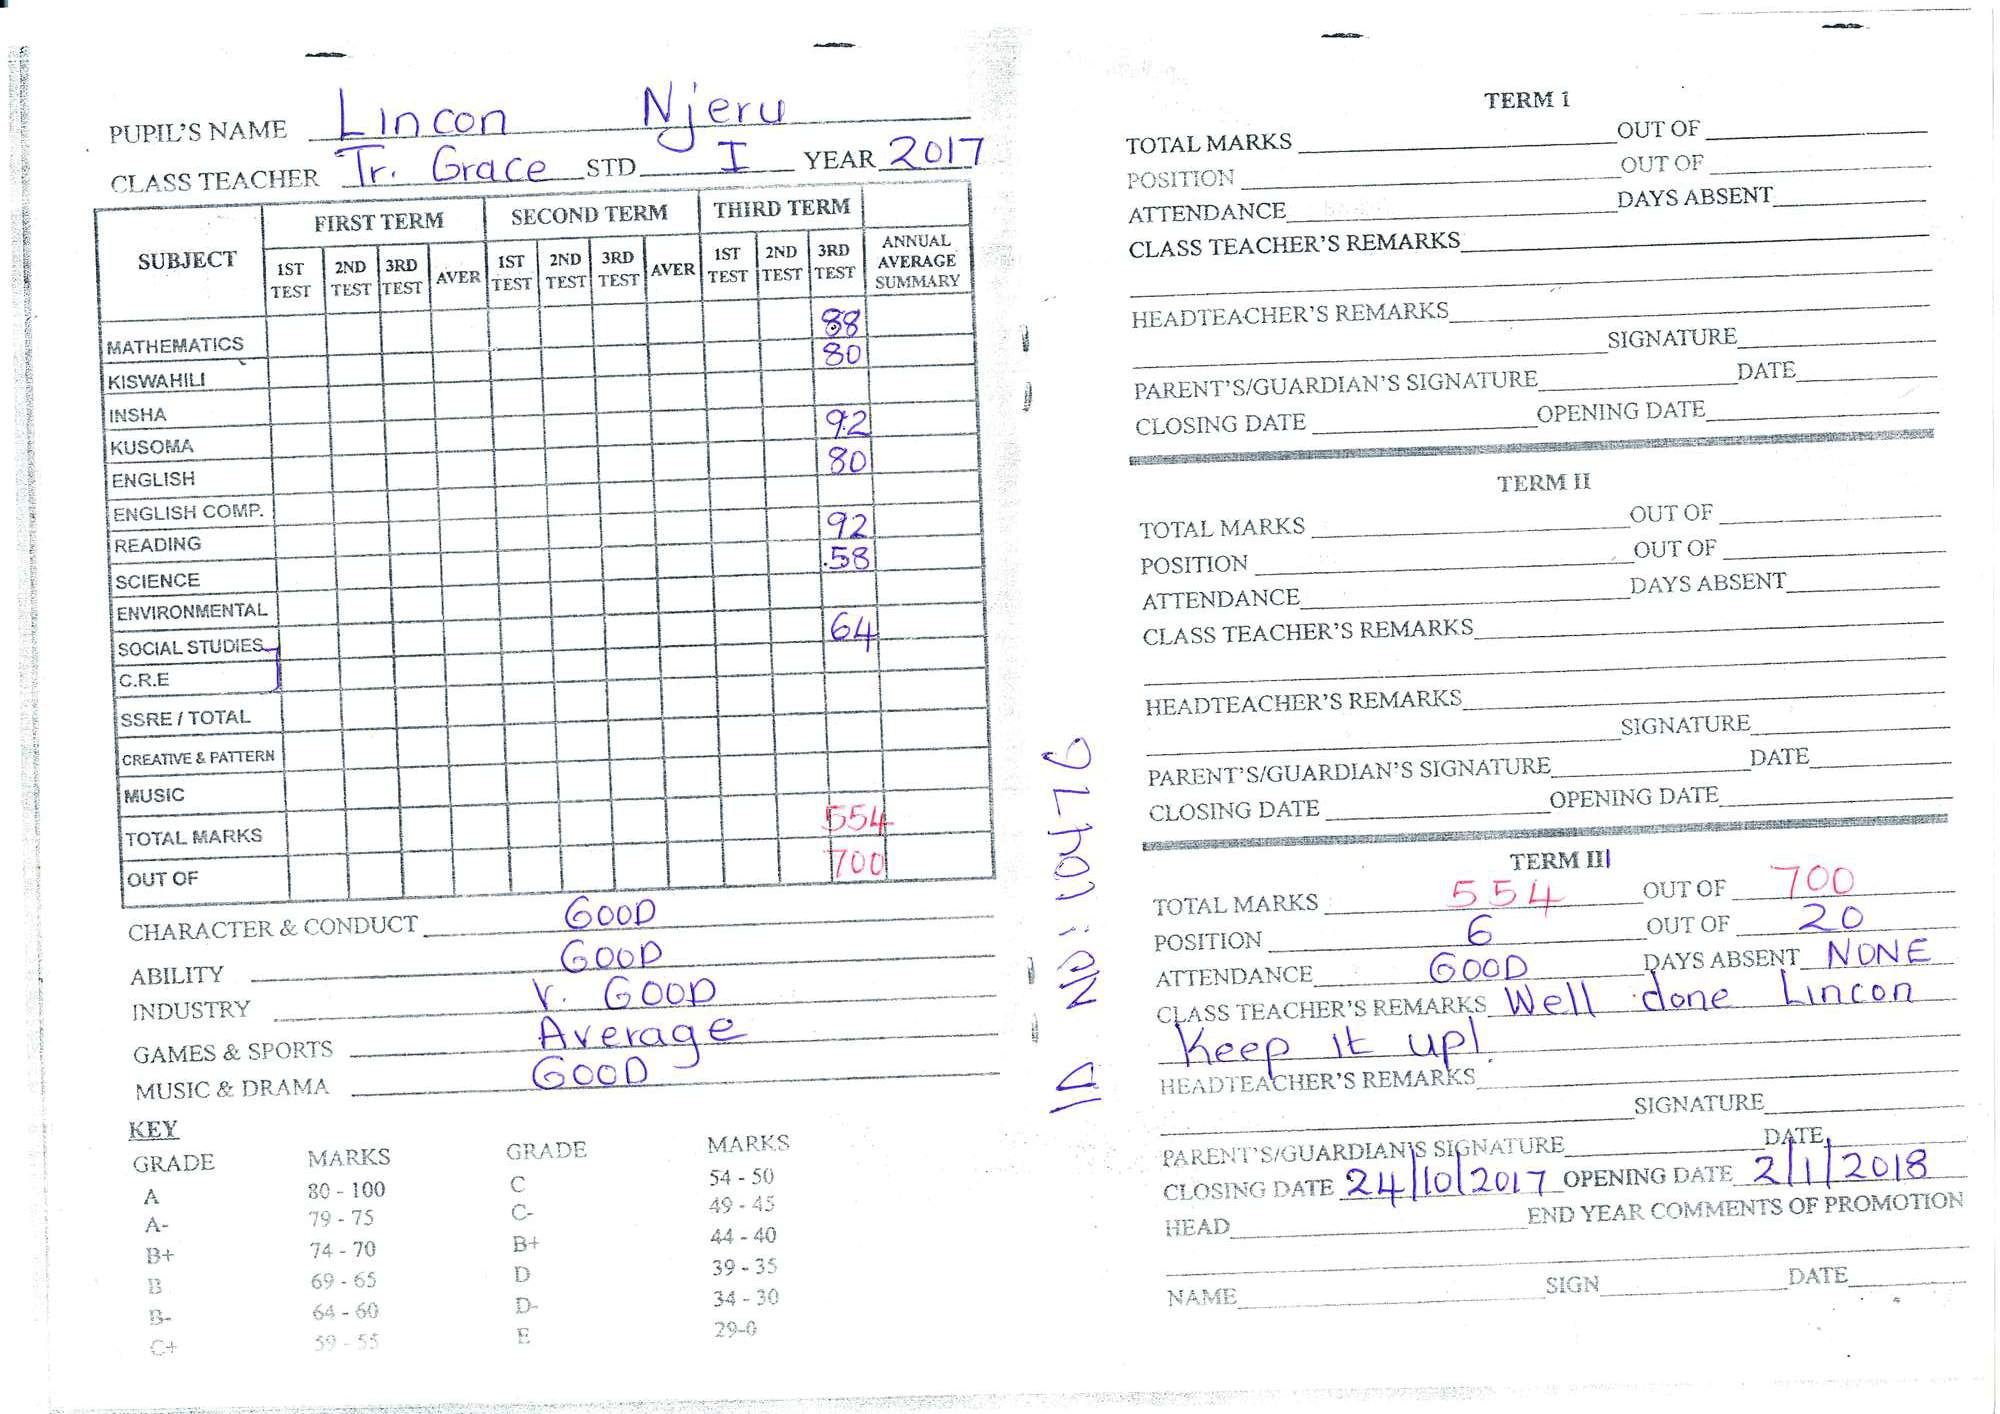 PUPIL'S NAME Lincon Njeru
CLASS TEACHER Tr. Grace STD I YEAR 2017
SUBJECT FIRST TERM SECOND TERM THIRD TERM ANNUAL AVERAGE SUMMARY
1ST TEST 2ND TEST 3RD TEST AVER 1ST TEST 2ND TEST 3RD TEST AVER 1ST TEST 2ND TEST 3RD TEST
MATHEMATICS 88
KISWAHILI 80
INSHA
KUSOMA 92
ENGLISH 80
ENGLISH COMP.
READING 92
SCIENCE 58
ENVIRONMENTAL
SOCIAL STUDIES 64
C.R.E
SSRE / TOTAL
CREATIVE & PATTERN
MUSIC
TOTAL MARKS 554
OUT OF 700
CHARACTER & CONDUCT GOOD
ABILITY GOOD
INDUSTRY V. GOOD
GAMES & SPORTS Average
MUSIC & DRAMA GOOD
KEY
GRADE MARKS GRADE MARKS
A 80 - 100 C 54 - 50
A- 79 - 75 C- 49 - 45
B+ 74 - 70 B+ 44 - 40
B 69 - 65 D 39 - 35
B- 64 - 60 D- 34 - 30
C+ 59 - 55 E 29-0
ID NO: 110476
TERM I
TOTAL MARKS OUT OF
POSITION OUT OF
ATTENDANCE DAYS ABSENT
CLASS TEACHER'S REMARKS
HEADTEACHER'S REMARKS
SIGNATURE
PARENT'S/GUARDIAN'S SIGNATURE DATE
CLOSING DATE OPENING DATE
TERM II
TOTAL MARKS OUT OF
POSITION OUT OF
ATTENDANCE DAYS ABSENT
CLASS TEACHER'S REMARKS
HEADTEACHER'S REMARKS
SIGNATURE
PARENT'S/GUARDIAN'S SIGNATURE DATE
CLOSING DATE OPENING DATE
TERM III
TOTAL MARKS 554 OUT OF 700
POSITION 6 OUT OF 20
ATTENDANCE GOOD DAYS ABSENT NONE
CLASS TEACHER'S REMARKS Well done Lincon
Keep it up!
HEADTEACHER'S REMARKS
SIGNATURE
PARENT'S/GUARDIAN'S SIGNATURE DATE
CLOSING DATE 24/10/2017 OPENING DATE 2/1/2018
HEAD END YEAR COMMENTS OF PROMOTION
NAME SIGN DATE